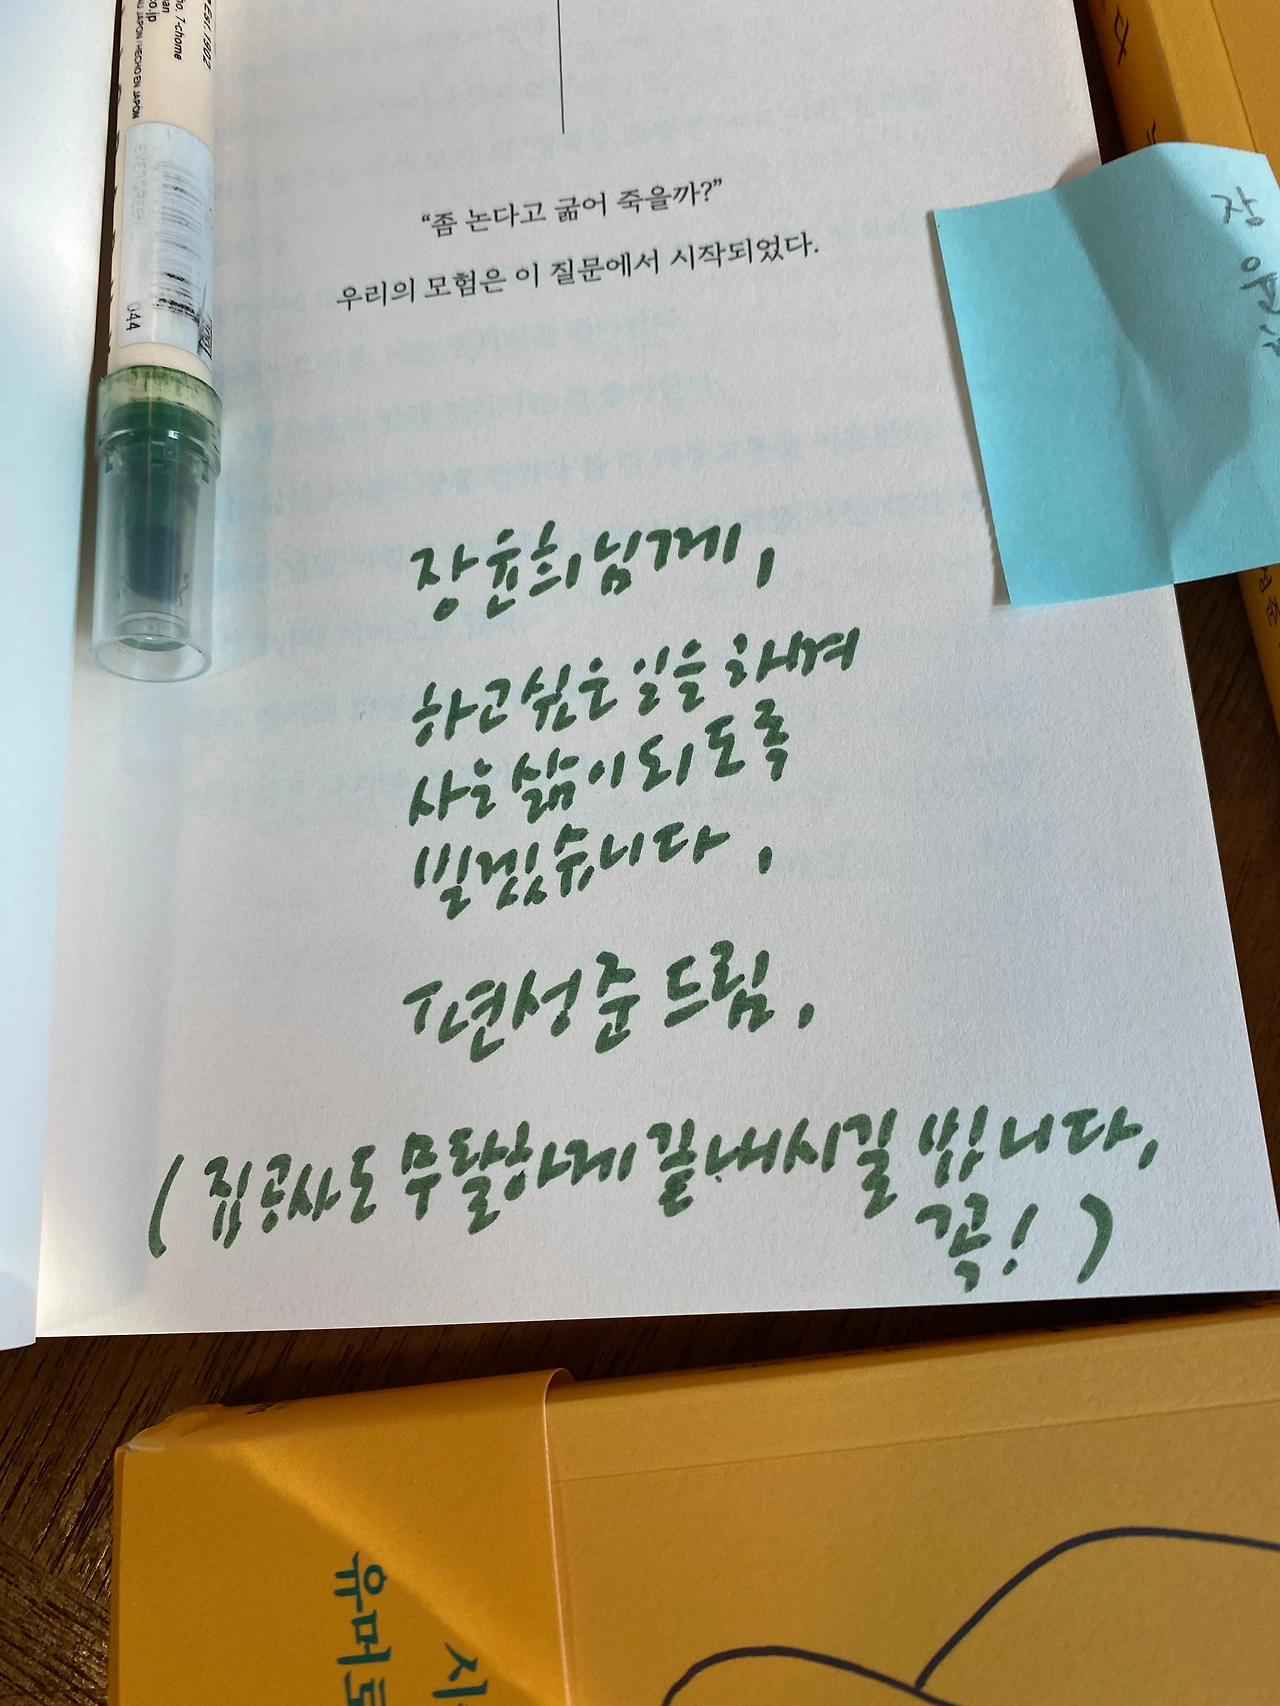 EST. 1902
7-chome
co.jp
JAPON / HECHO EN JAPÓN
EVERGREEN
044
“좀 논다고 굶어 죽을까?”
우리의 모험은 이 질문에서 시작되었다.
장윤희님께,
하고싶은 일을 하며
사는 삶이 되도록
빌겠습니다,
편성준 드림,
(집공사도 무탈하게 끝내시길 빕니다,
꼭!)
장
유머